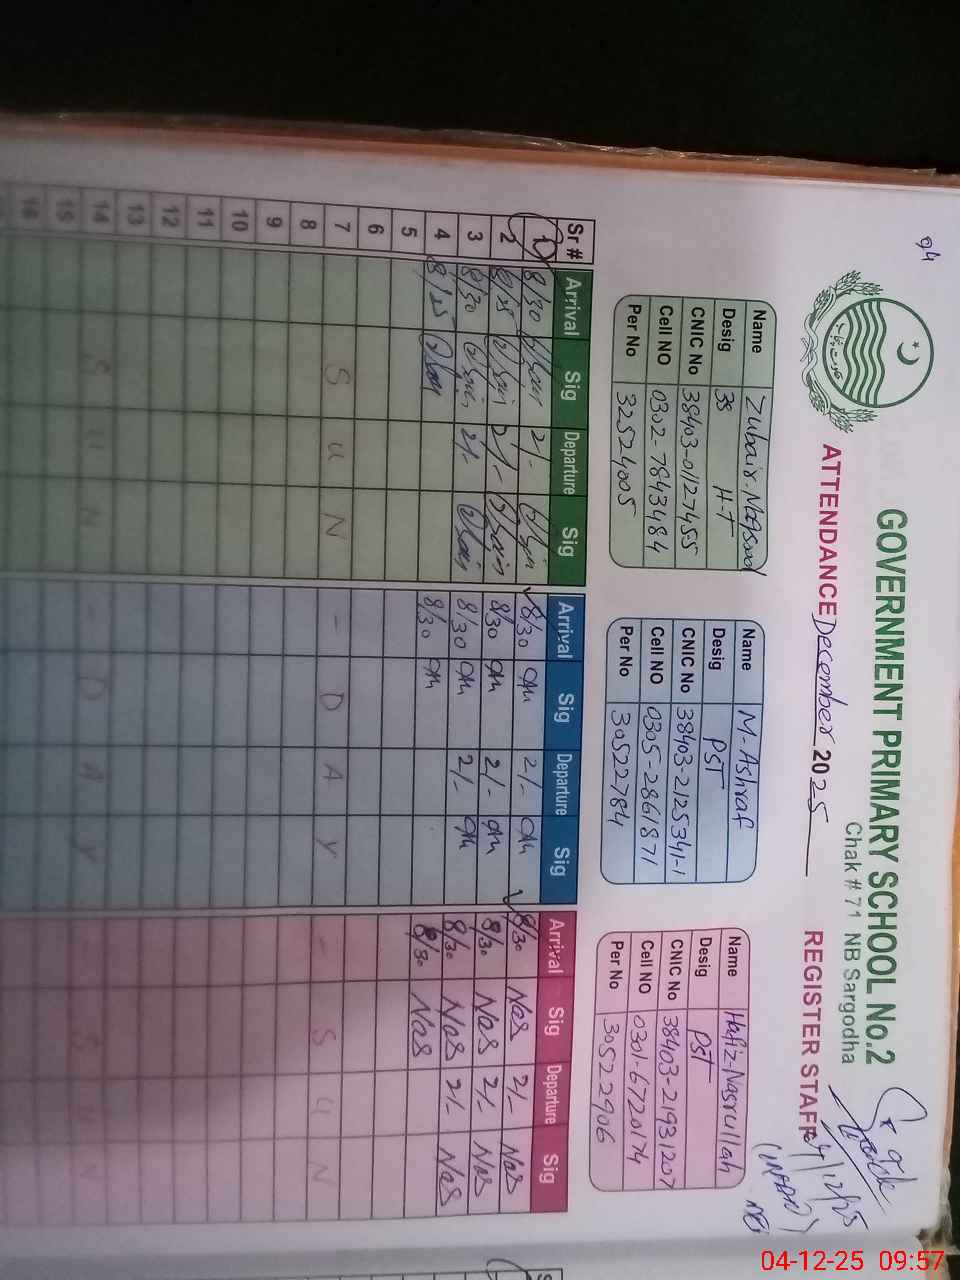 94
GOVERNMENT PRIMARY SCHOOL No.2
Chak # 71 NB Sargodha
ATTENDANCE December 2025 REGISTER STAFF
04/12/25
Name Zubair.Maqsood
Desig 38 H-T
CNIC No 38403-0112745-5
Cell NO 0302-7843484
Per No 32524005
Name M-Ashraf
Desig PST
CNIC No 38403-2125341-1
Cell NO 0305-2861871
Per No 30522784
Name Hafiz-Nasrullah
Desig PST
CNIC No 38403-21931207
Cell NO 0301-6720174
Per No 30522906
Sr # Arrival Sig Departure Sig Arrival Sig Departure Sig Arrival Sig Departure Sig
1 8/30 2/- 8/30 2/- 8/30 Nas 2/- Nas
2 8/25 2/- 8/30 2/- 8/30 Nas 2/- Nas
3 8/30 2/- 8/30 2/- 8/30 Nas 2/- Nas
4 8/25 8/30 8/30 Nas
5
6
7 S U N - D A Y - S U N
8
9
10
11
12
13
14 S U N - D A Y - S U N
15
16
04-12-25 09:57